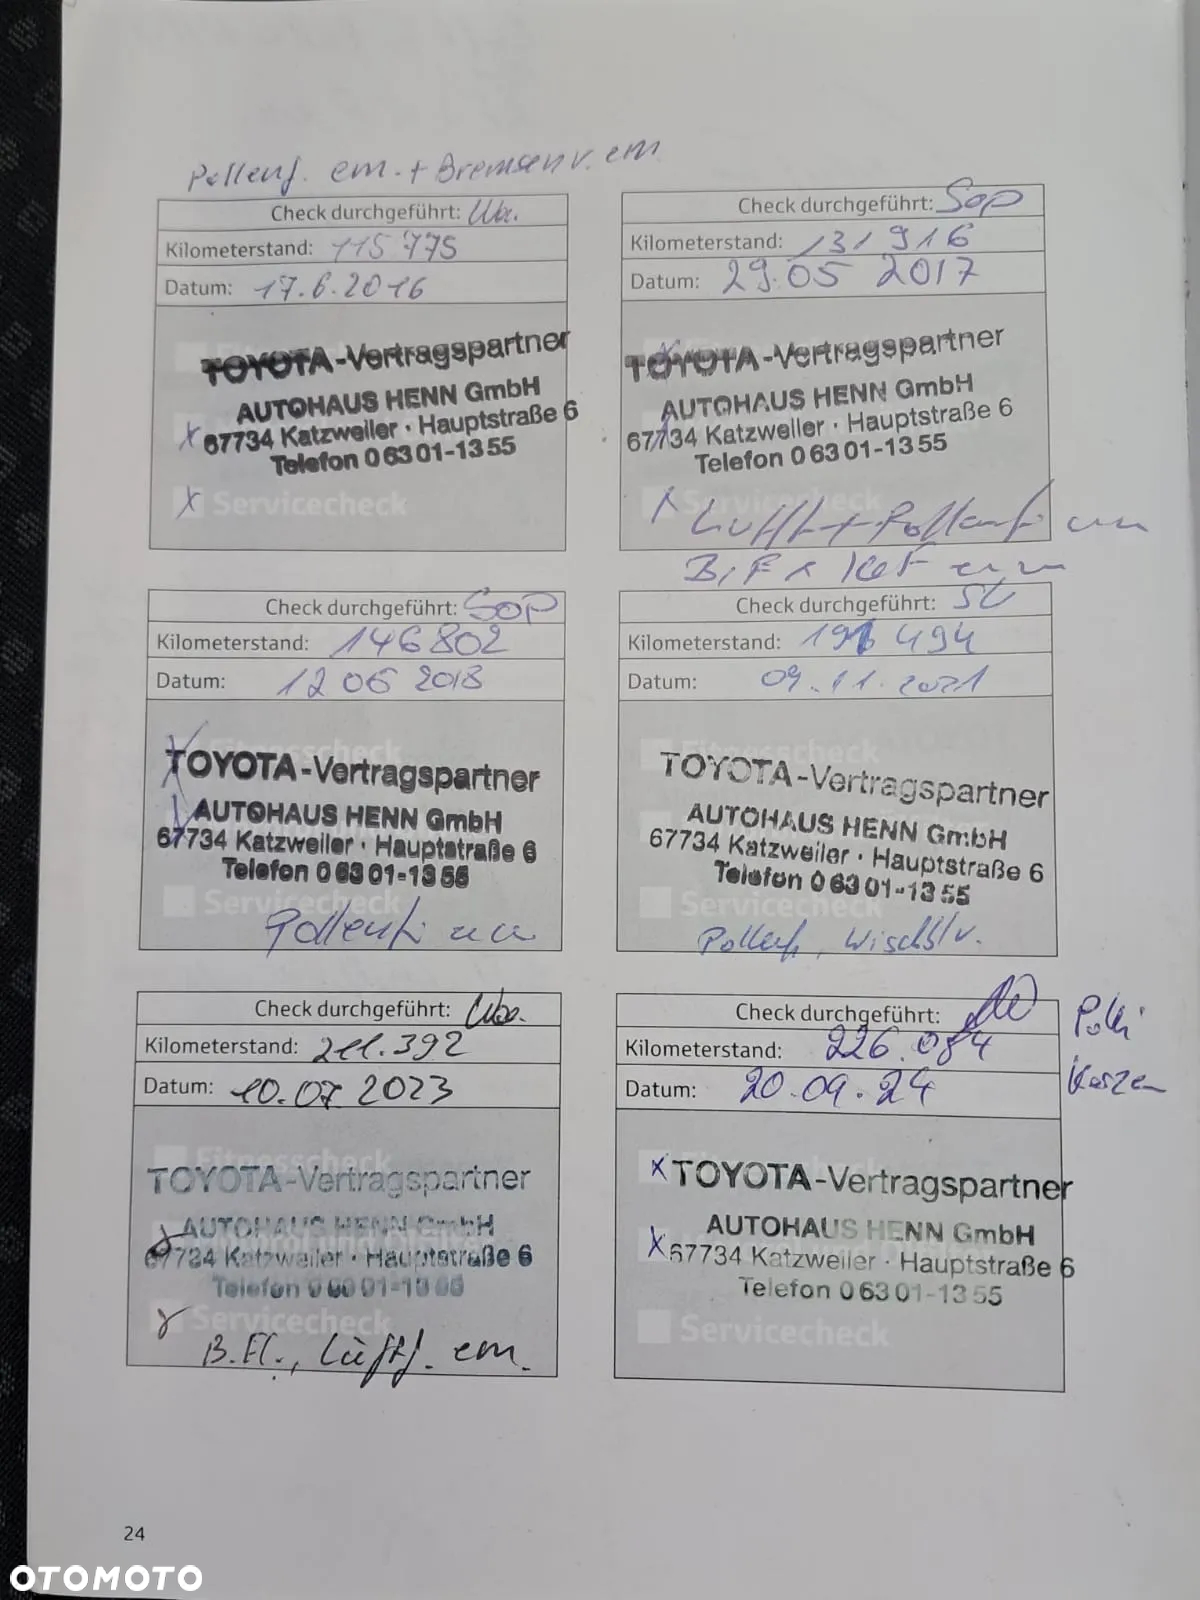 Pollenf. em. + Bremsen v. em
Check durchgeführt:
Kilometerstand: 115 775
Datum: 17.6.2016
TOYOTA-Vertragspartner
AUTOHAUS HENN GmbH
x 67734 Katzweiler · Hauptstraße 6
Telefon 0 63 01-13 55
x Servicecheck
Check durchgeführt: Sop
Kilometerstand: 131 916
Datum: 29.05 2017
TOYOTA-Vertragspartner
AUTOHAUS HENN GmbH
67734 Katzweiler · Hauptstraße 6
Telefon 0 63 01-13 55
Servicecheck
Luftf + Pollenf
Check durchgeführt: Sop
Kilometerstand: 146 802
Datum: 12 06 2018
Fitnesscheck
TOYOTA-Vertragspartner
AUTOHAUS HENN GmbH
67734 Katzweiler · Hauptstraße 6
Telefon 0 63 01-13 55
Servicecheck
Pollenf
Check durchgeführt:
Kilometerstand: 494
Datum: 09.11.2021
Fitnesscheck
TOYOTA-Vertragspartner
AUTOHAUS HENN GmbH
67734 Katzweiler · Hauptstraße 6
Telefon 0 63 01-13 55
Servicecheck
Pollenf, Wischbl v.
Check durchgeführt:
Kilometerstand: 211.392
Datum: 10.07 2023
Fitnesscheck
TOYOTA-Vertragspartner
AUTOHAUS HENN GmbH
67734 Katzweiler · Hauptstraße 6
Telefon 0 63 01-13 55
Servicecheck
B.Fl., Lüftf. em.
Check durchgeführt:
Kilometerstand: 226.084
Datum: 20.09.24
Kerzen
Fitnesscheck
x TOYOTA-Vertragspartner
AUTOHAUS HENN GmbH
x 67734 Katzweiler · Hauptstraße 6
Telefon 0 63 01-13 55
Servicecheck
24
OTOMOTO